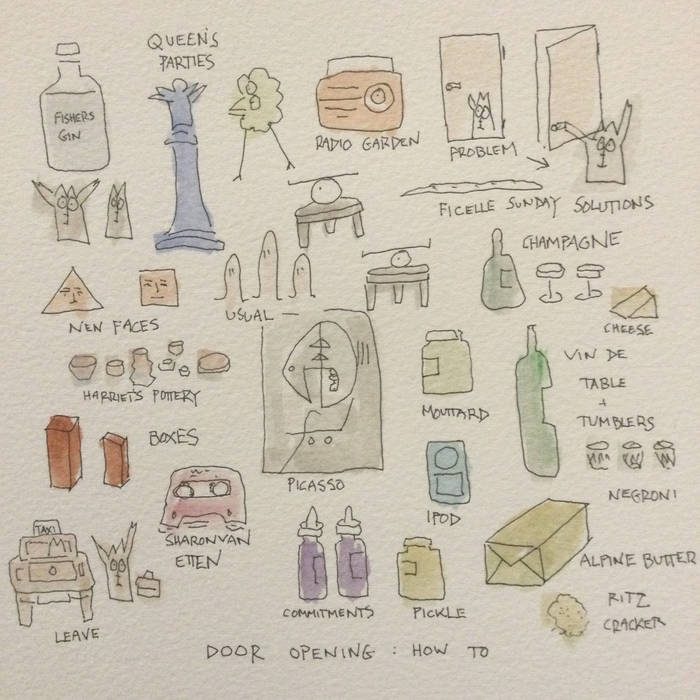 QUEEN'S
PARTIES
FISHERS
GIN
RADIO GARDEN
PROBLEM
FICELLE SUNDAY SOLUTIONS
CHAMPAGNE
NEW FACES
USUAL —
CHEESE
HARRIET'S POTTERY
MOUTARD
VIN DE
TABLE
+
TUMBLERS
BOXES
PICASSO
IPOD
NEGRONI
SHARON VAN
ETTEN
TAXI
COMMITMENTS
PICKLE
ALPINE BUTTER
RITZ
CRACKER
LEAVE
DOOR OPENING : HOW TO